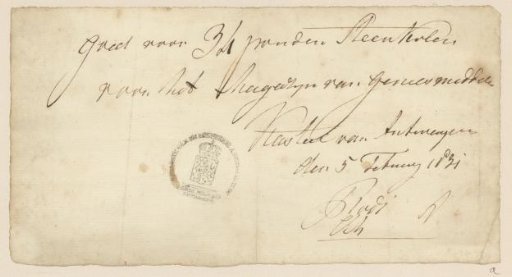 goed voor 3 ponden Steenkolen
voor het Magazyn van Geneesmiddelen
Kasteel van Antwerpen
den 5 February 1831